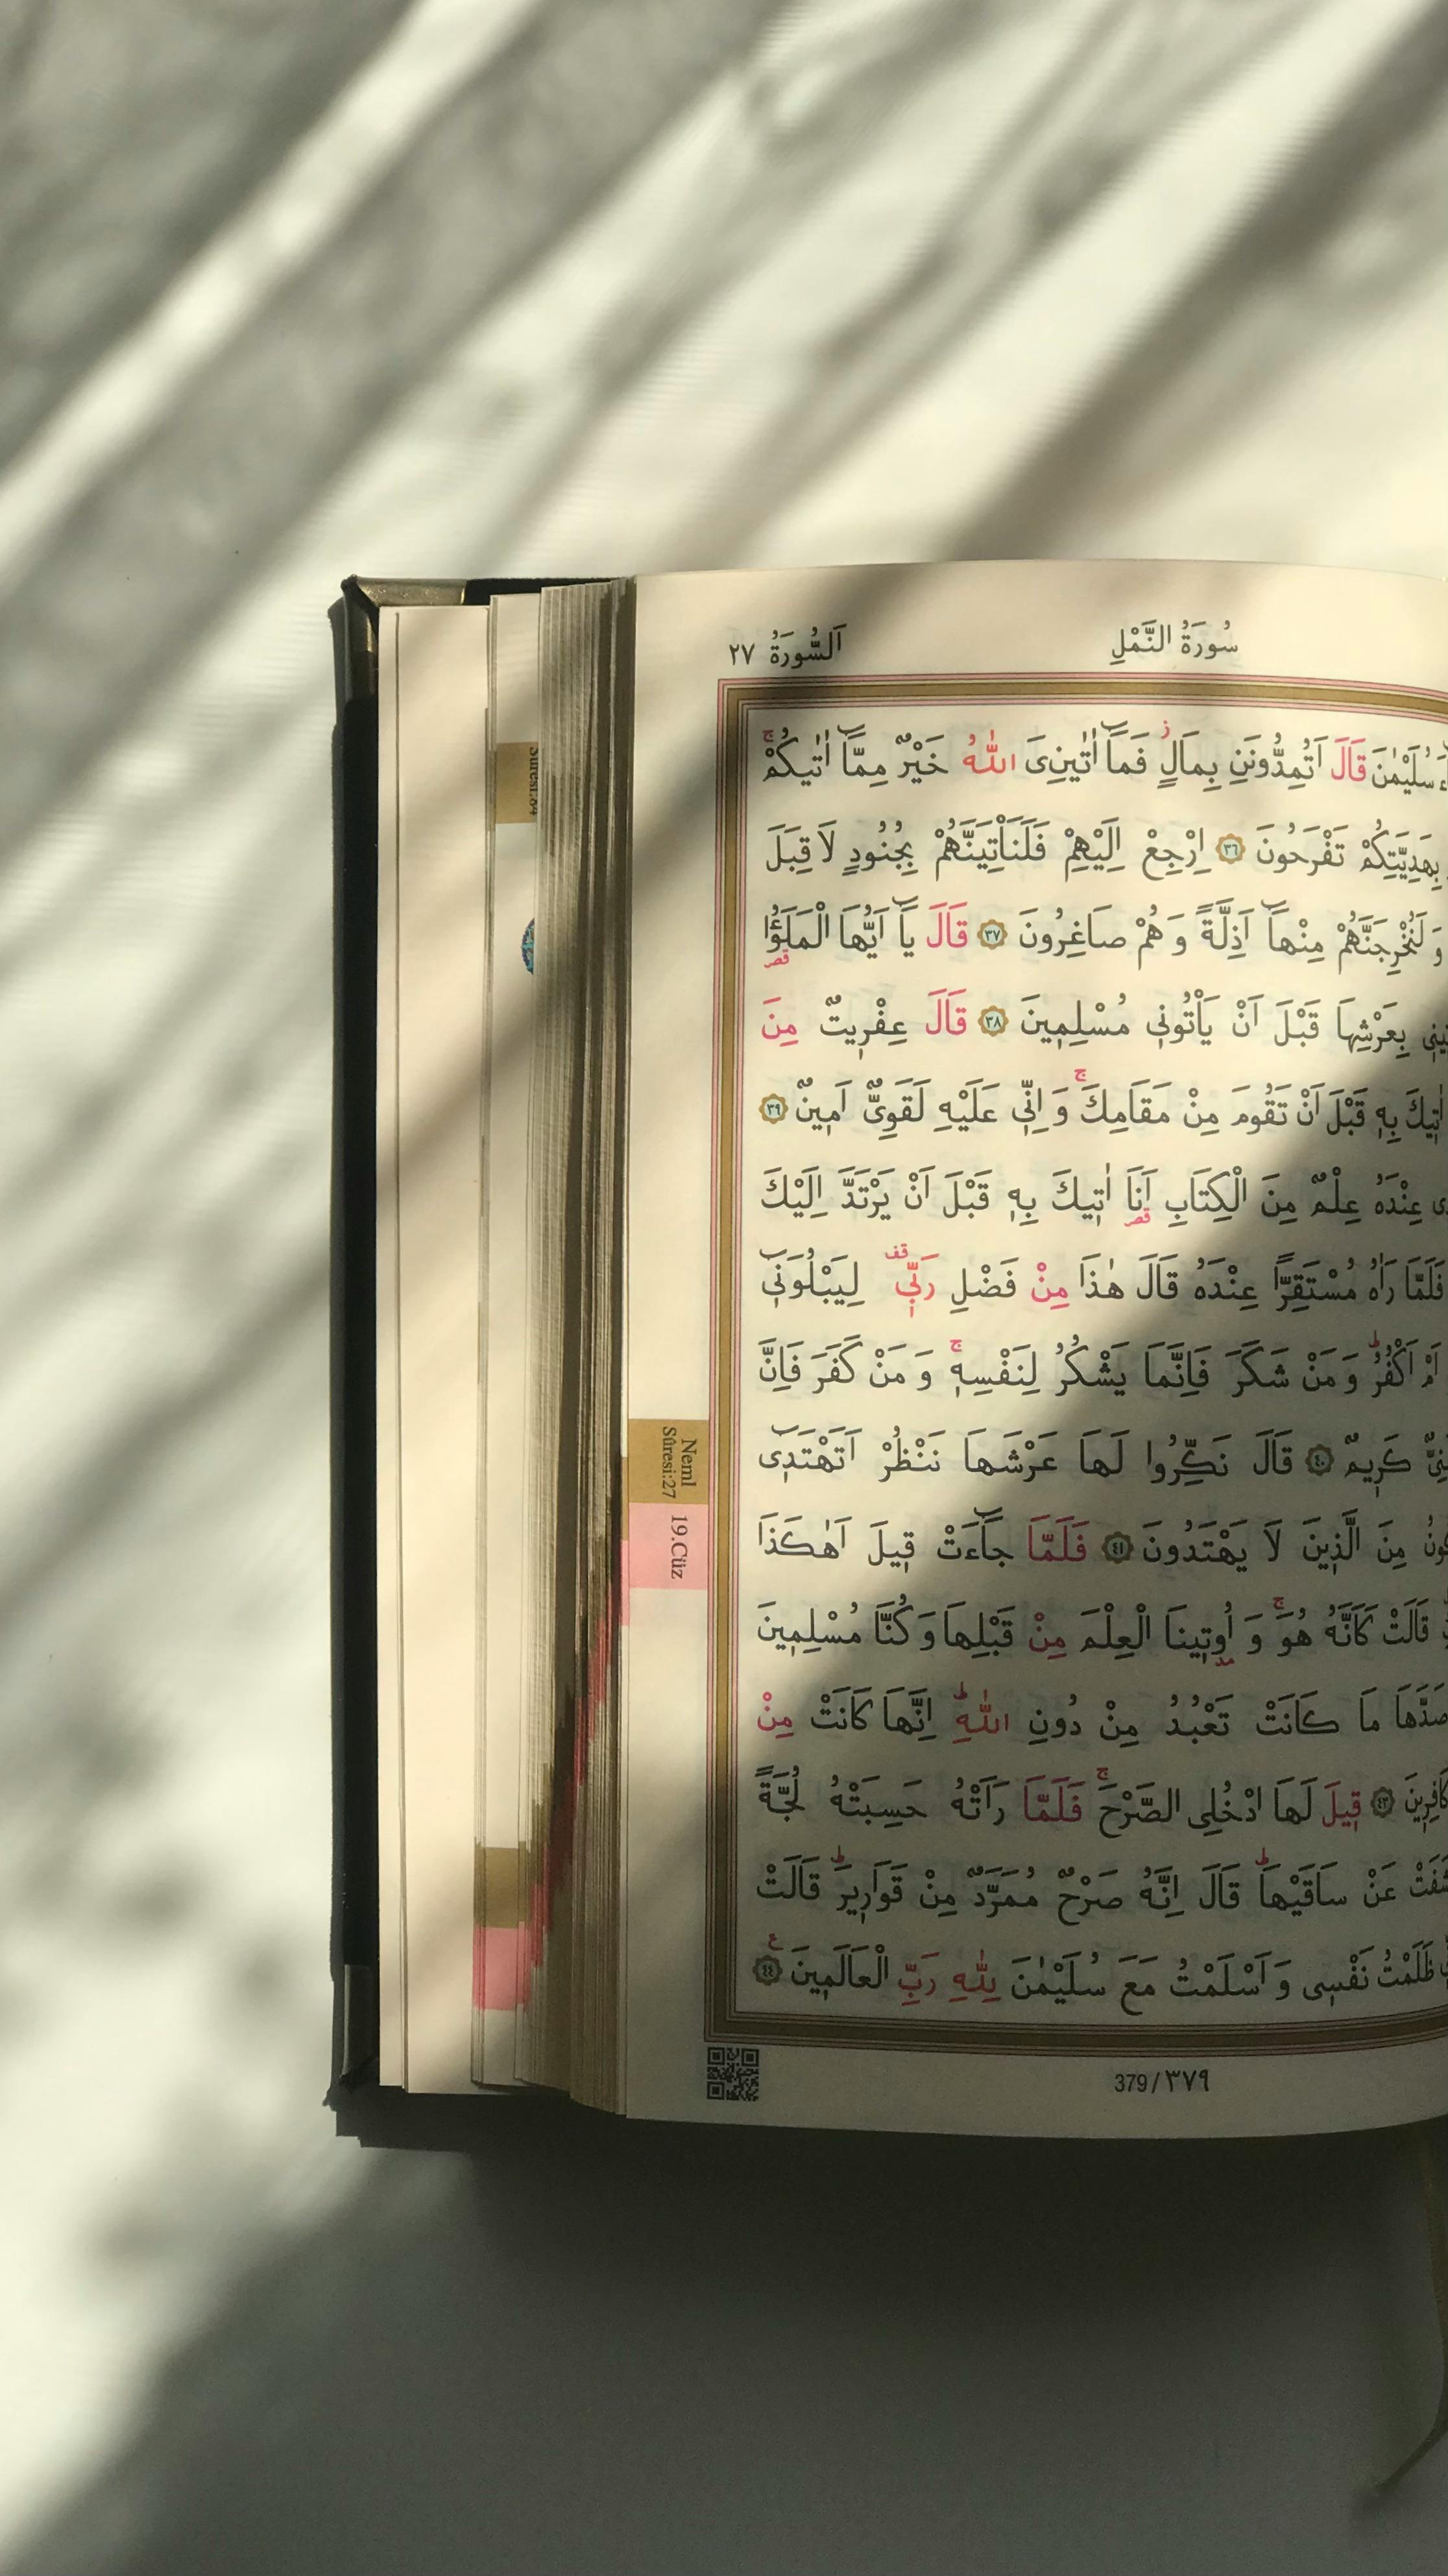 سُورَةُ النَّمْلِ
اَلسُّورَةُ ٢٧
سُلَيْمٰنَ قَالَ اَتُمِدُّونَنِ بِمَالٍۘ فَمَٓا اٰتٰينِيَ اللّٰهُ خَيْرٌ مِمَّٓا اٰتٰيكُمْۚ
بِهَدِيَّتِكُمْ تَفْرَحُونَ ٣٦ اِرْجِعْ اِلَيْهِمْ فَلَنَأْتِيَنَّهُمْ بِجُنُودٍ لَا قِبَلَ
وَلَنُخْرِجَنَّهُمْ مِنْهَٓا اَذِلَّةً وَهُمْ صَاغِرُونَ ٣٧ قَالَ يَٓا اَيُّهَا الْمَلَؤُ۬ا
بِعَرْشِهَا قَبْلَ اَنْ يَأْتُونِي مُسْلِمِينَ ٣٨ قَالَ عِفْرِيتٌ مِنَ
اٰتِيكَ بِهِ قَبْلَ اَنْ تَقُومَ مِنْ مَقَامِكَۚ وَاِنِّي عَلَيْهِ لَقَوِيٌّ اَمِينٌ ٣٩
عِنْدَهُ عِلْمٌ مِنَ الْكِتَابِ اَنَا اٰتِيكَ بِهِ قَبْلَ اَنْ يَرْتَدَّ اِلَيْكَ
فَلَمَّا رَاٰهُ مُسْتَقِرًّا عِنْدَهُ قَالَ هٰذَا مِنْ فَضْلِ رَبِّي لِيَبْلُوَنِٓي
اَمْ اَكْفُرُۜ وَمَنْ شَكَرَ فَاِنَّمَا يَشْكُرُ لِنَفْسِهِۚ وَمَنْ كَفَرَ فَاِنَّ
كَرِيمٌ ٤٠ قَالَ نَكِّرُوا لَهَا عَرْشَهَا نَنْظُرْ اَتَهْتَدِٓي
مِنَ الَّذِينَ لَا يَهْتَدُونَ ٤١ فَلَمَّا جَٓاءَتْ قِيلَ اَهٰكَذَا
قَالَتْ كَاَنَّهُ هُوَۚ وَاُو۫تِينَا الْعِلْمَ مِنْ قَبْلِهَا وَكُنَّا مُسْلِمِينَ
مَا كَانَتْ تَعْبُدُ مِنْ دُونِ اللّٰهِۜ اِنَّهَا كَانَتْ مِنْ
٤٣ قِيلَ لَهَا ادْخُلِي الصَّرْحَۚ فَلَمَّا رَاَتْهُ حَسِبَتْهُ لُجَّةً
عَنْ سَاقَيْهَاۜ قَالَ اِنَّهُ صَرْحٌ مُمَرَّدٌ مِنْ قَوَارِيرَۜ قَالَتْ
ظَلَمْتُ نَفْسِي وَاَسْلَمْتُ مَعَ سُلَيْمٰنَ لِلّٰهِ رَبِّ الْعَالَمِينَ ٤٤
Neml
Sûresi:27
19.Cüz
379/٣٧٩